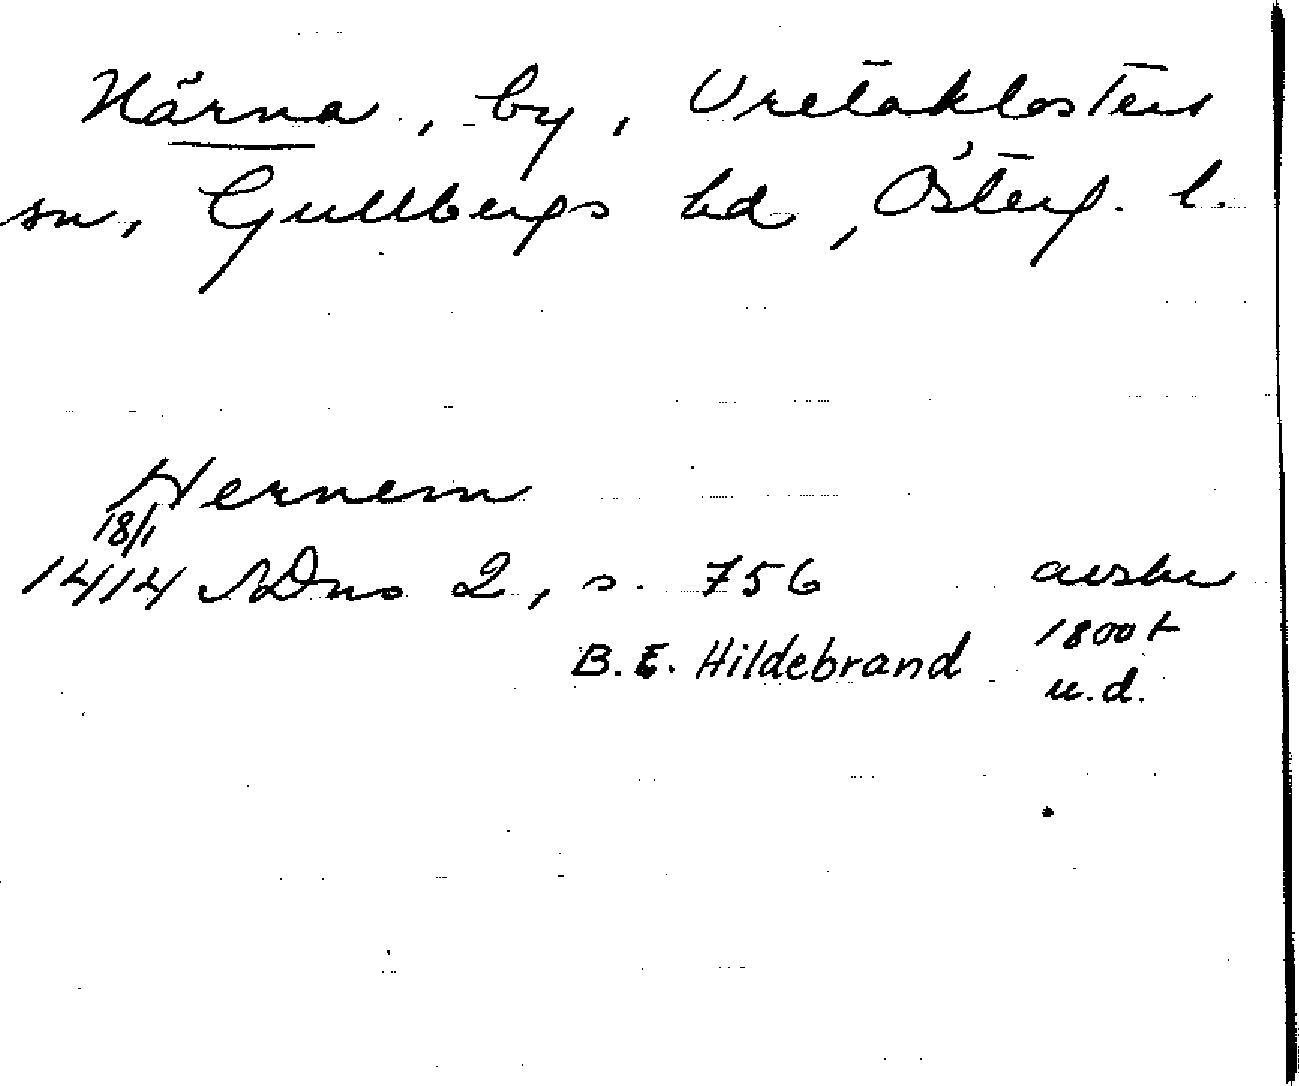 Härna, by, Vretaklosters
sn, Gullbergs hd, Österg. l.
Hernem
18/1
1414 SDns 2, s. 756 avskr
B. E. Hildebrand 1800t
u.d.